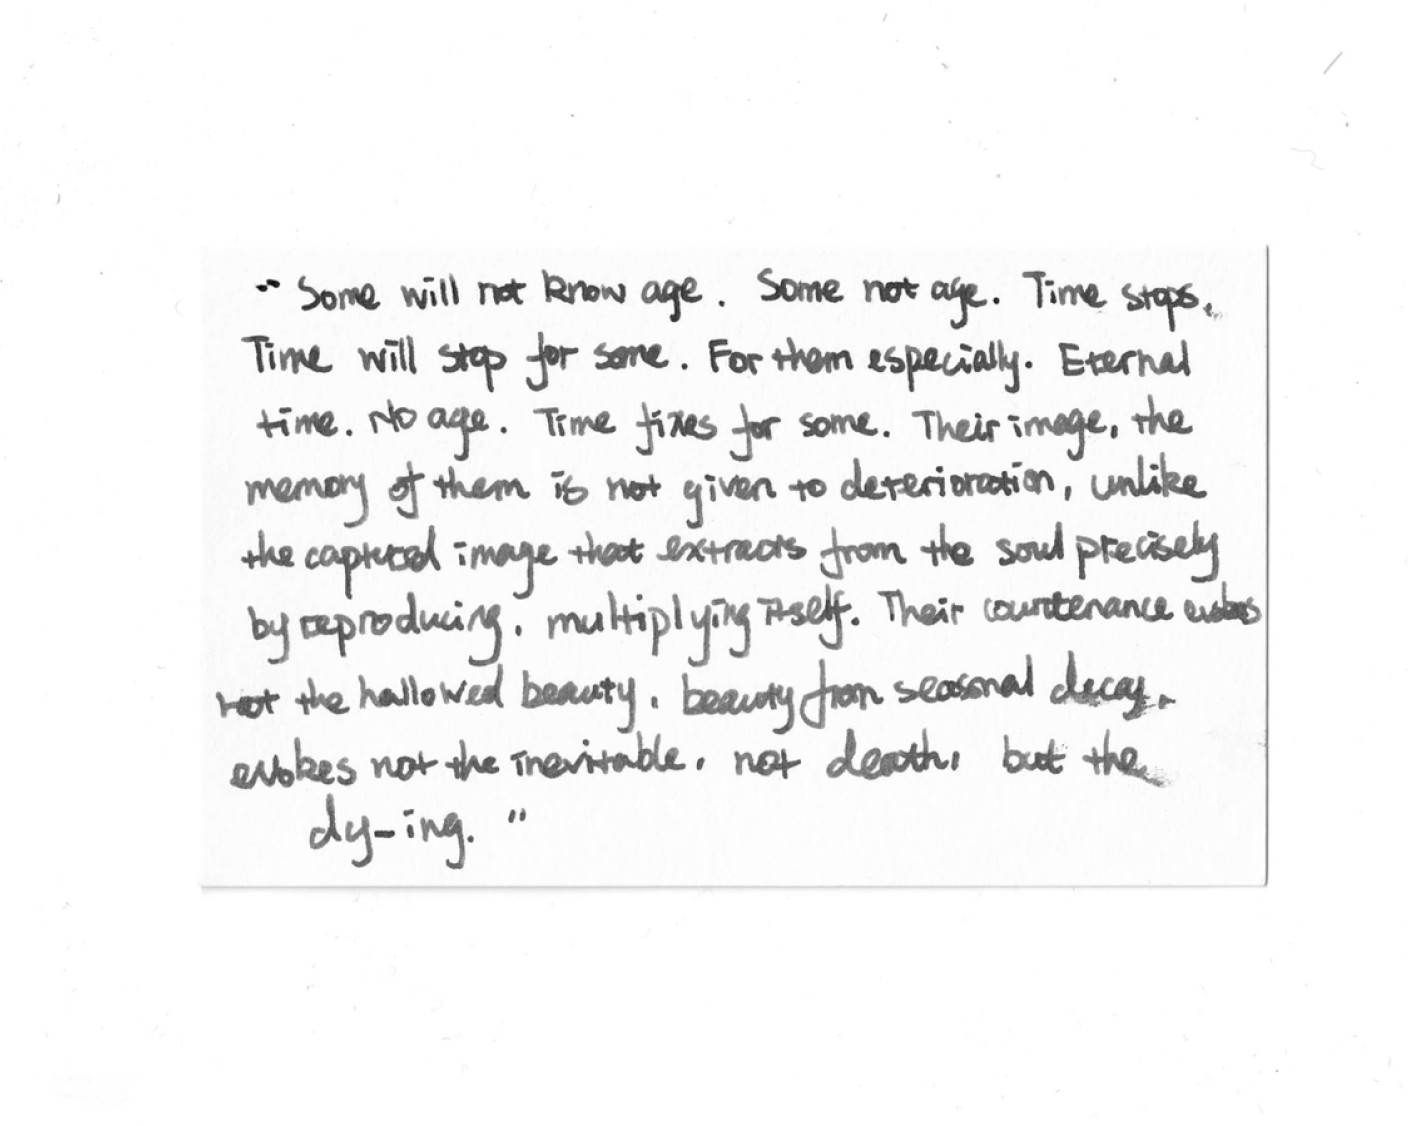 " Some will not know age. Some not age. Time stops.
Time will stop for some. For them especially. Eternal
time. No age. Time fixes for some. Their image, the
memory of them is not given to deterioration, unlike
the captured image that extracts from the soul precisely
by reproducing, multiplying itself. Their countenance evokes
not the hallowed beauty, beauty from seasonal decay,
evokes not the inevitable, not death, but the
dy-ing. "